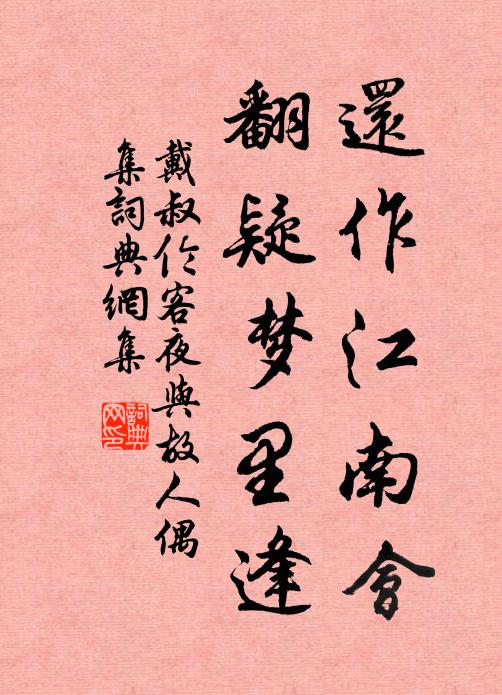 還作江南會
翻疑梦里逢
戴叔伦客夜與故人偶
集詞典網集
詞典网印